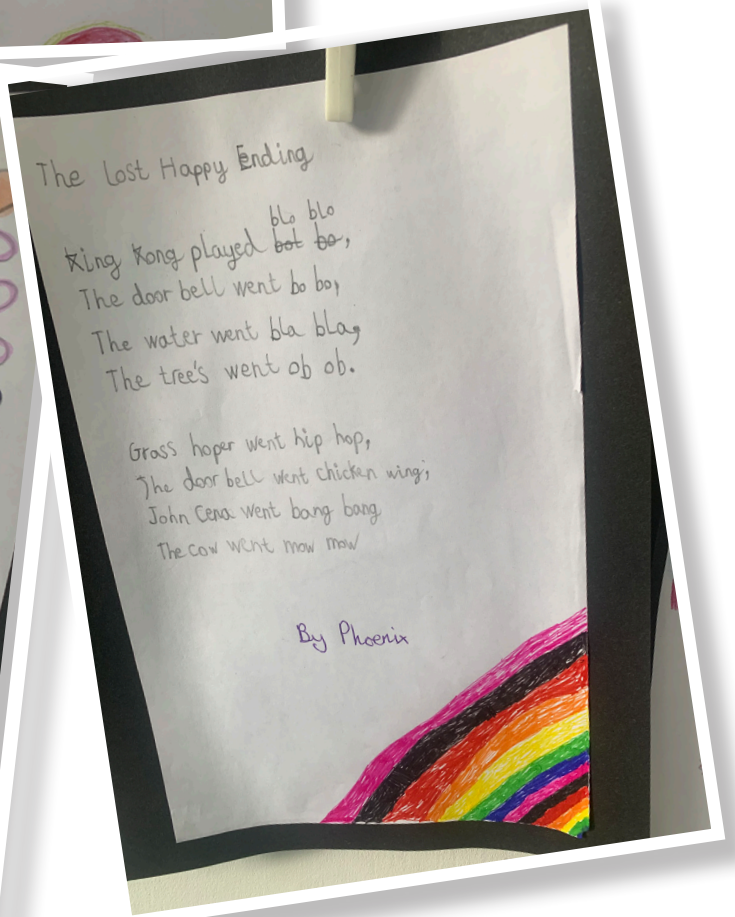 The Lost Happy Ending
blo blo
King Kong played bot bo,
The door bell went bo bo,
The water went bla bla,
The tree's went ob ob.
Grass hoper went hip hop,
The door bell went chicken wing,
John Cena went bang bang
The cow went mow mow
By Phoenix